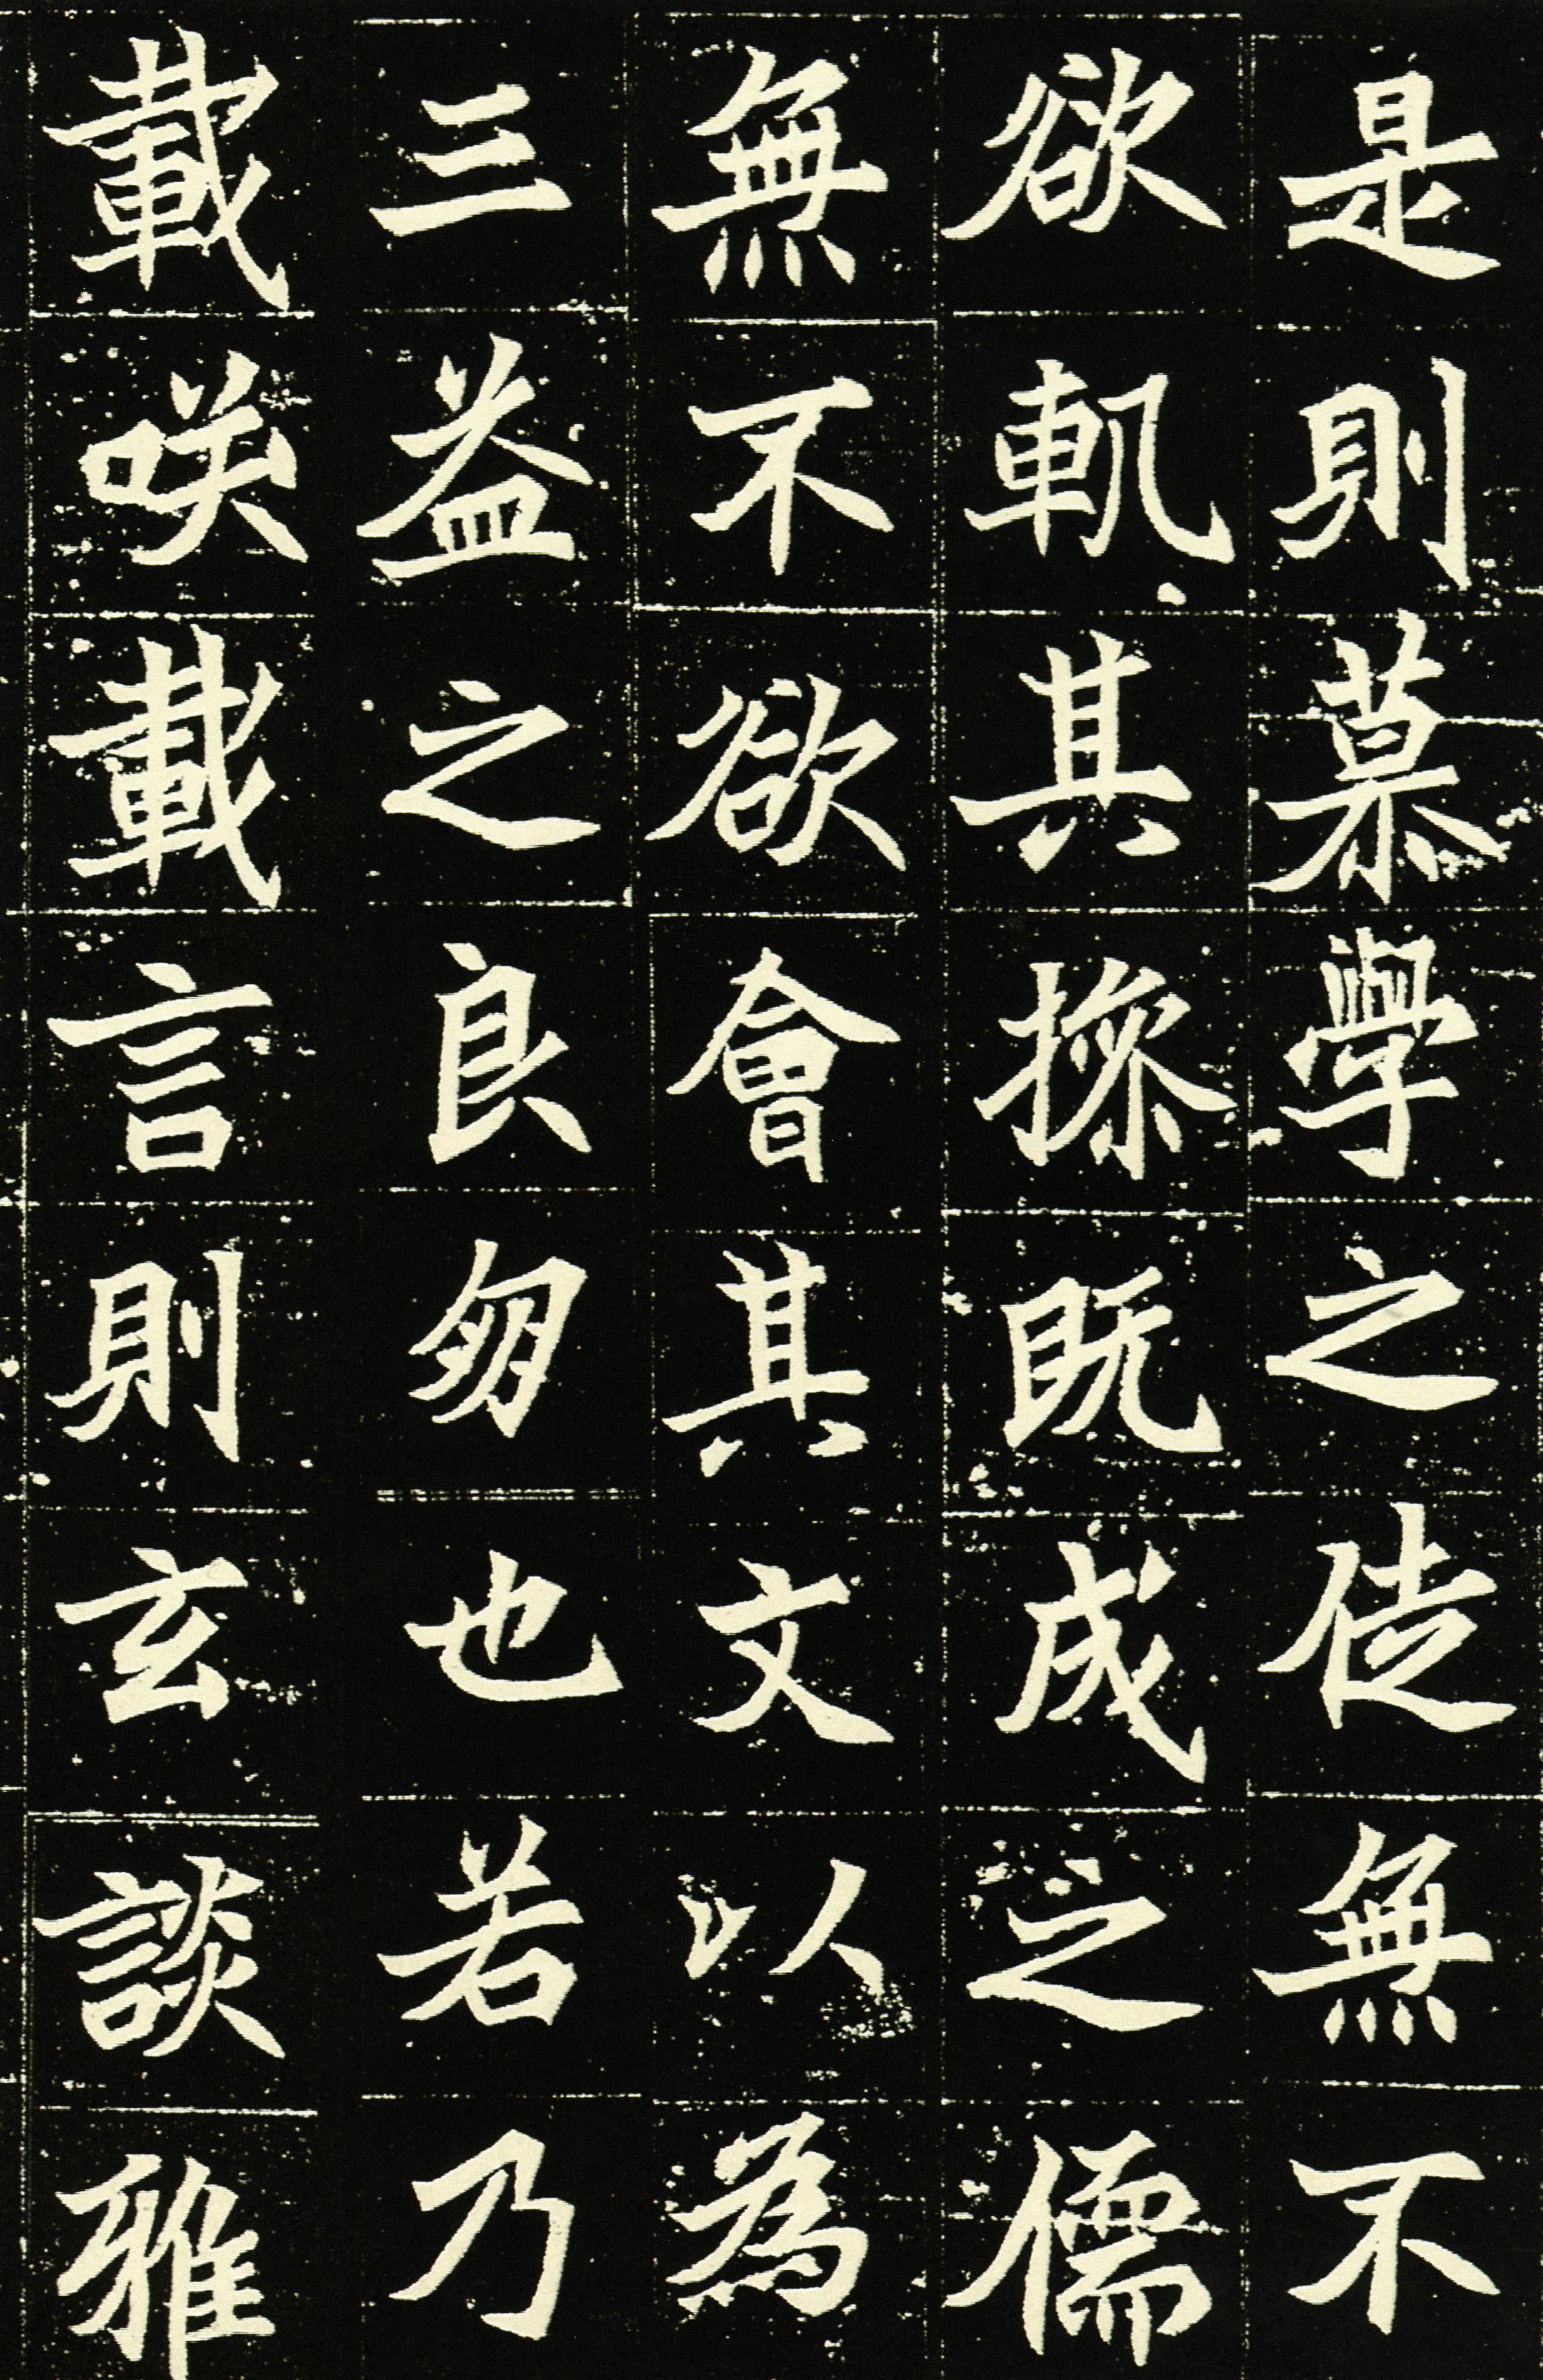 是則慕學之徒無不
欲軌其操既成之儒
無不欲會其文以為
三益之良朋也若乃
載咲載言則玄談雅